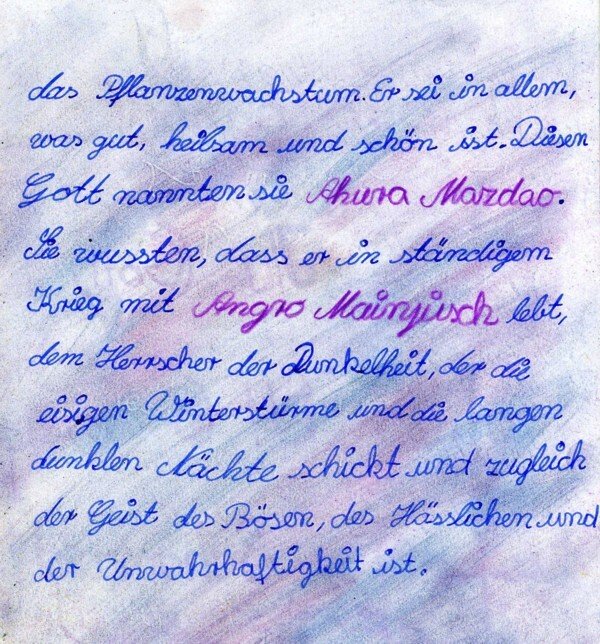 das Pflanzenwachstum. Er sei in allem,
was gut, heilsam und schön ist. Diesen
Gott nannten sie Ahura Mazdao.
Sie wussten, dass er in ständigem
Krieg mit Angro Mainjusch lebt,
dem Herrscher der Dunkelheit, der die
eisigen Winterstürme und die langen
dunklen Nächte schickt und zugleich
der Geist des Bösen, des Hässlichen und
der Unwahrhaftigkeit ist.